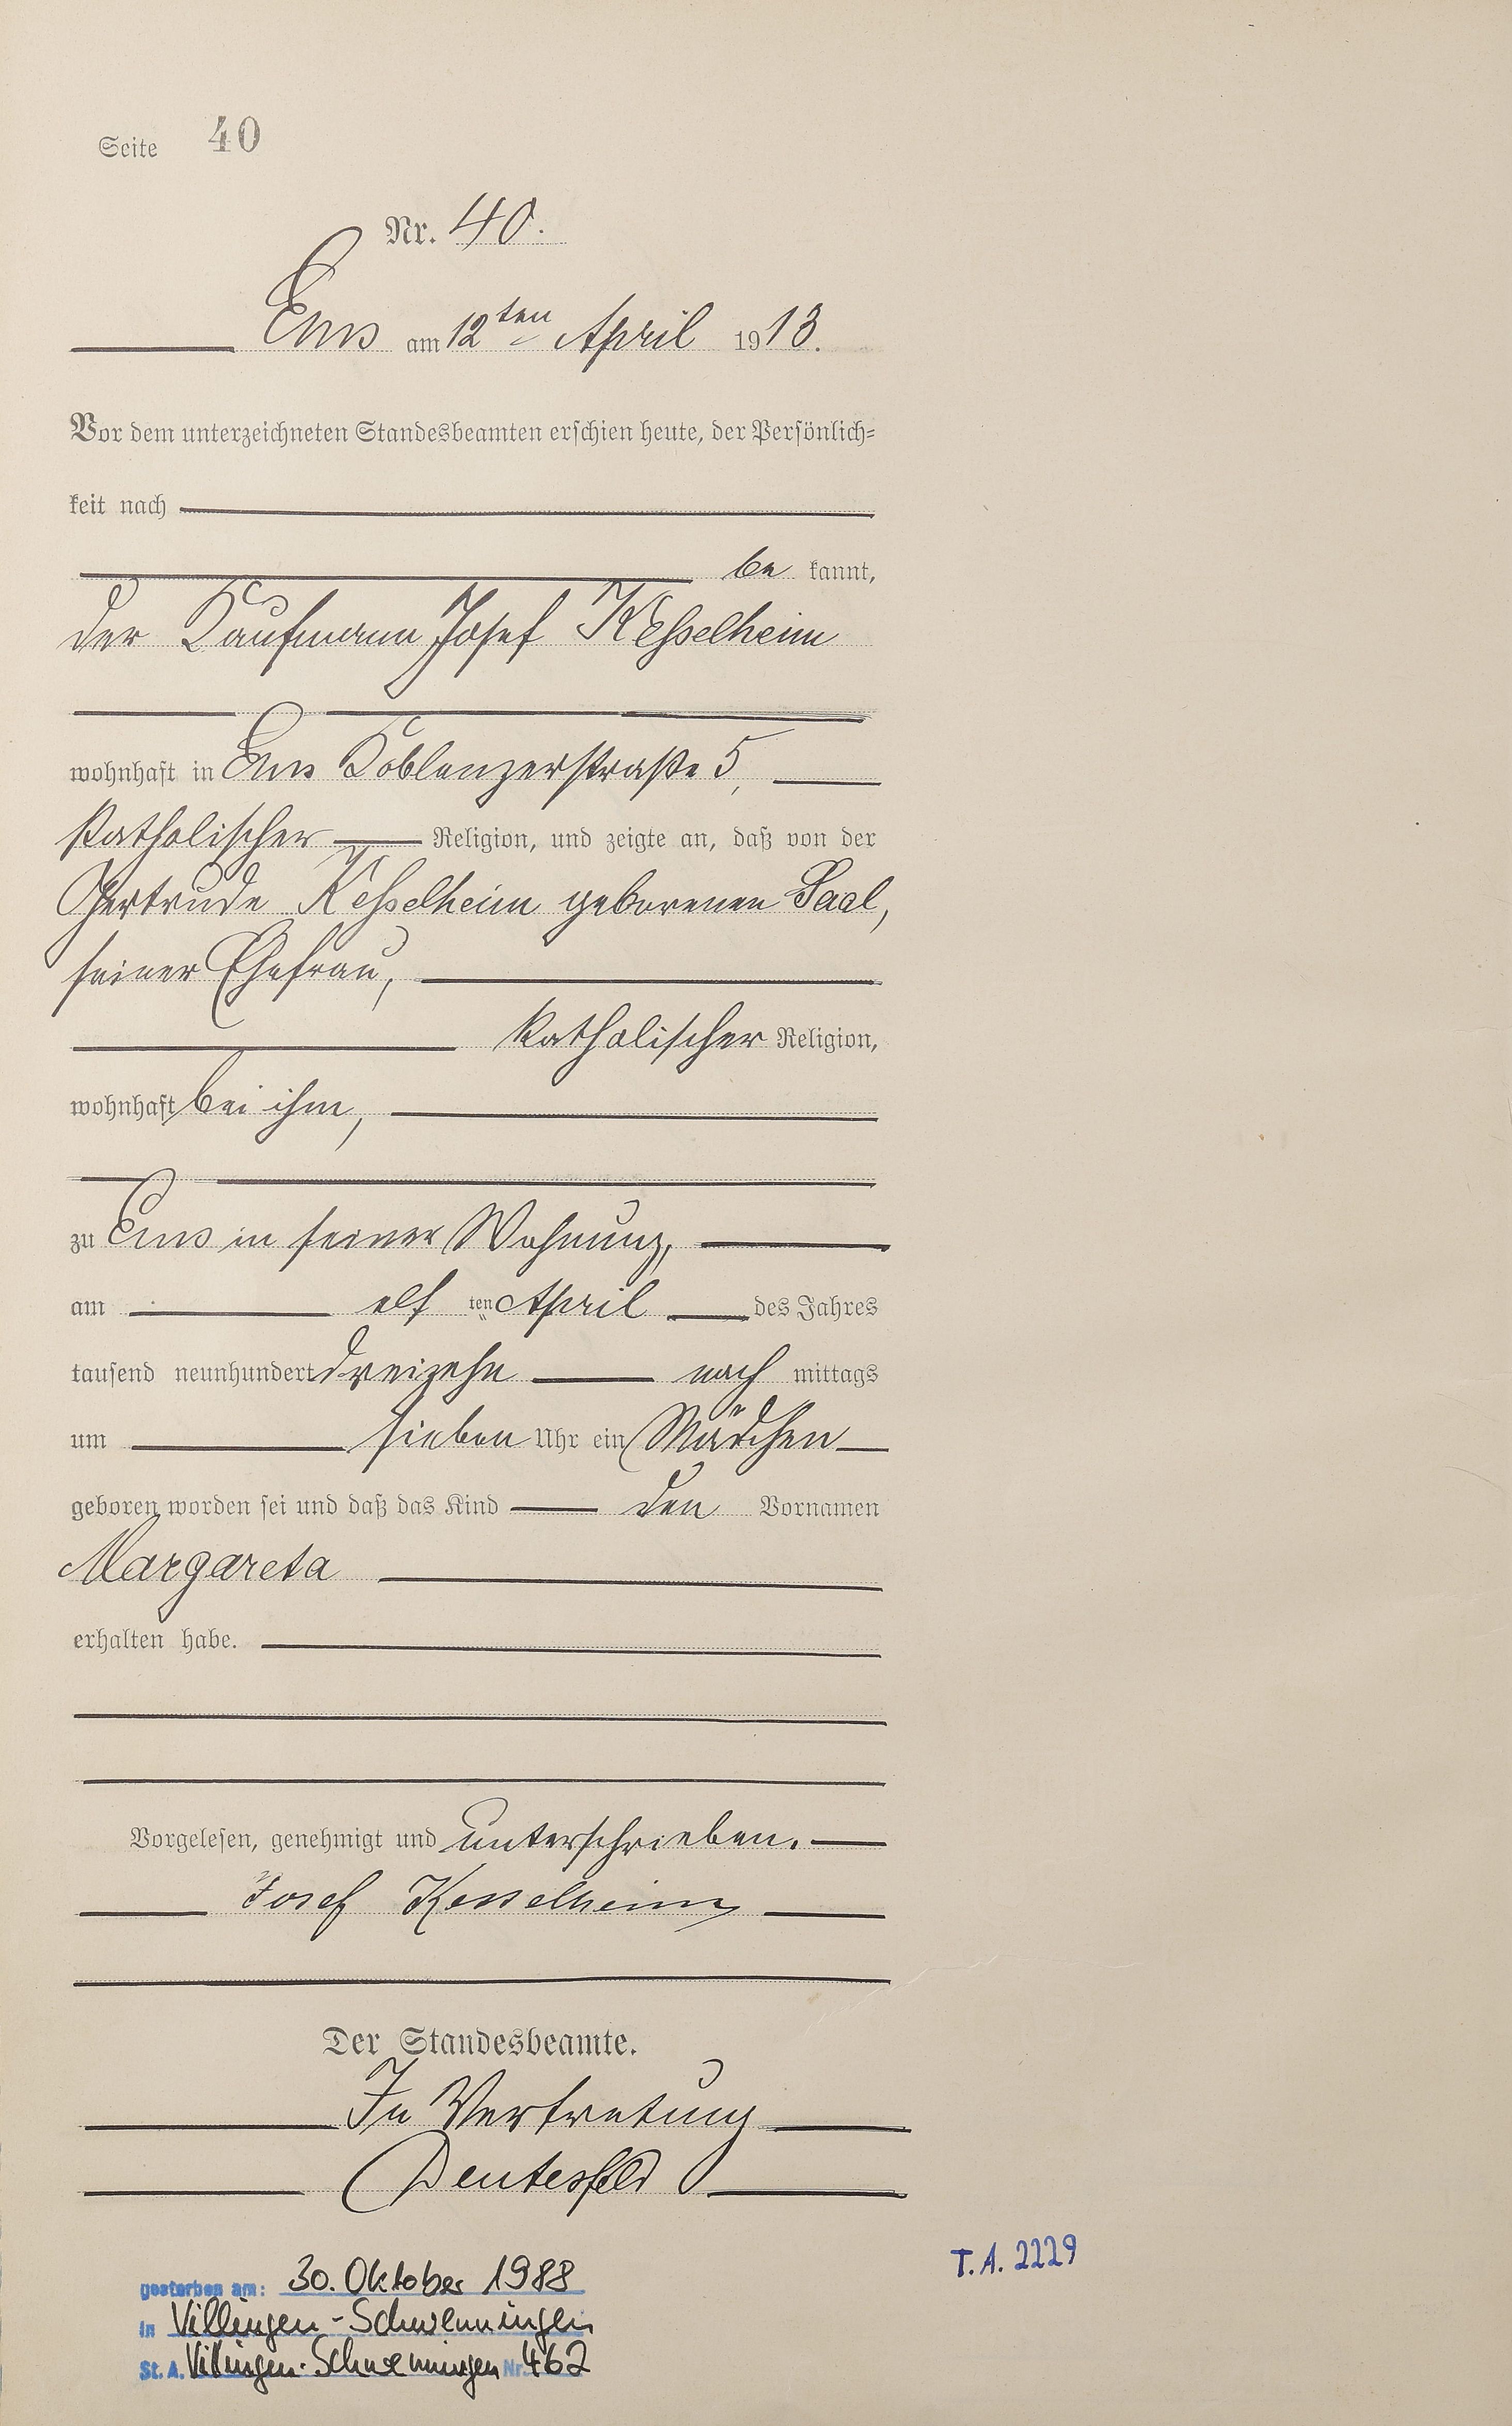 Seite 40
Nr. 40.
Ems am 12ten April 1913.
Vor dem unterzeichneten Standesbeamten erschien heute, der Persönlich=
keit nach
be kannt,
der Kaufmann Josef Kesselheim
wohnhaft in Ems Koblenzerstraße 5,
katholischer Religion, und zeigte an, daß von der
Gertrude Kesselheim geborenen Saal,
seiner Ehefrau,
katholischer Religion,
wohnhaft bei ihm,
zu Ems in seiner Wohnung,
am elf ten April des Jahres
tausend neunhundert dreizehn nach mittags
um sieben Uhr ein Mädchen
geboren worden sei und daß das Kind den Vornamen
Margareta
erhalten habe.
Vorgelesen, genehmigt und unterschrieben.
Josef Kesselheim
Der Standesbeamte.
In Vertretung
Deutesfeld
T.A. 2229
gestorben am: 30. Oktober 1988
in Villingen-Schwenningen
St. A. Villingen-Schwenningen Nr. 462